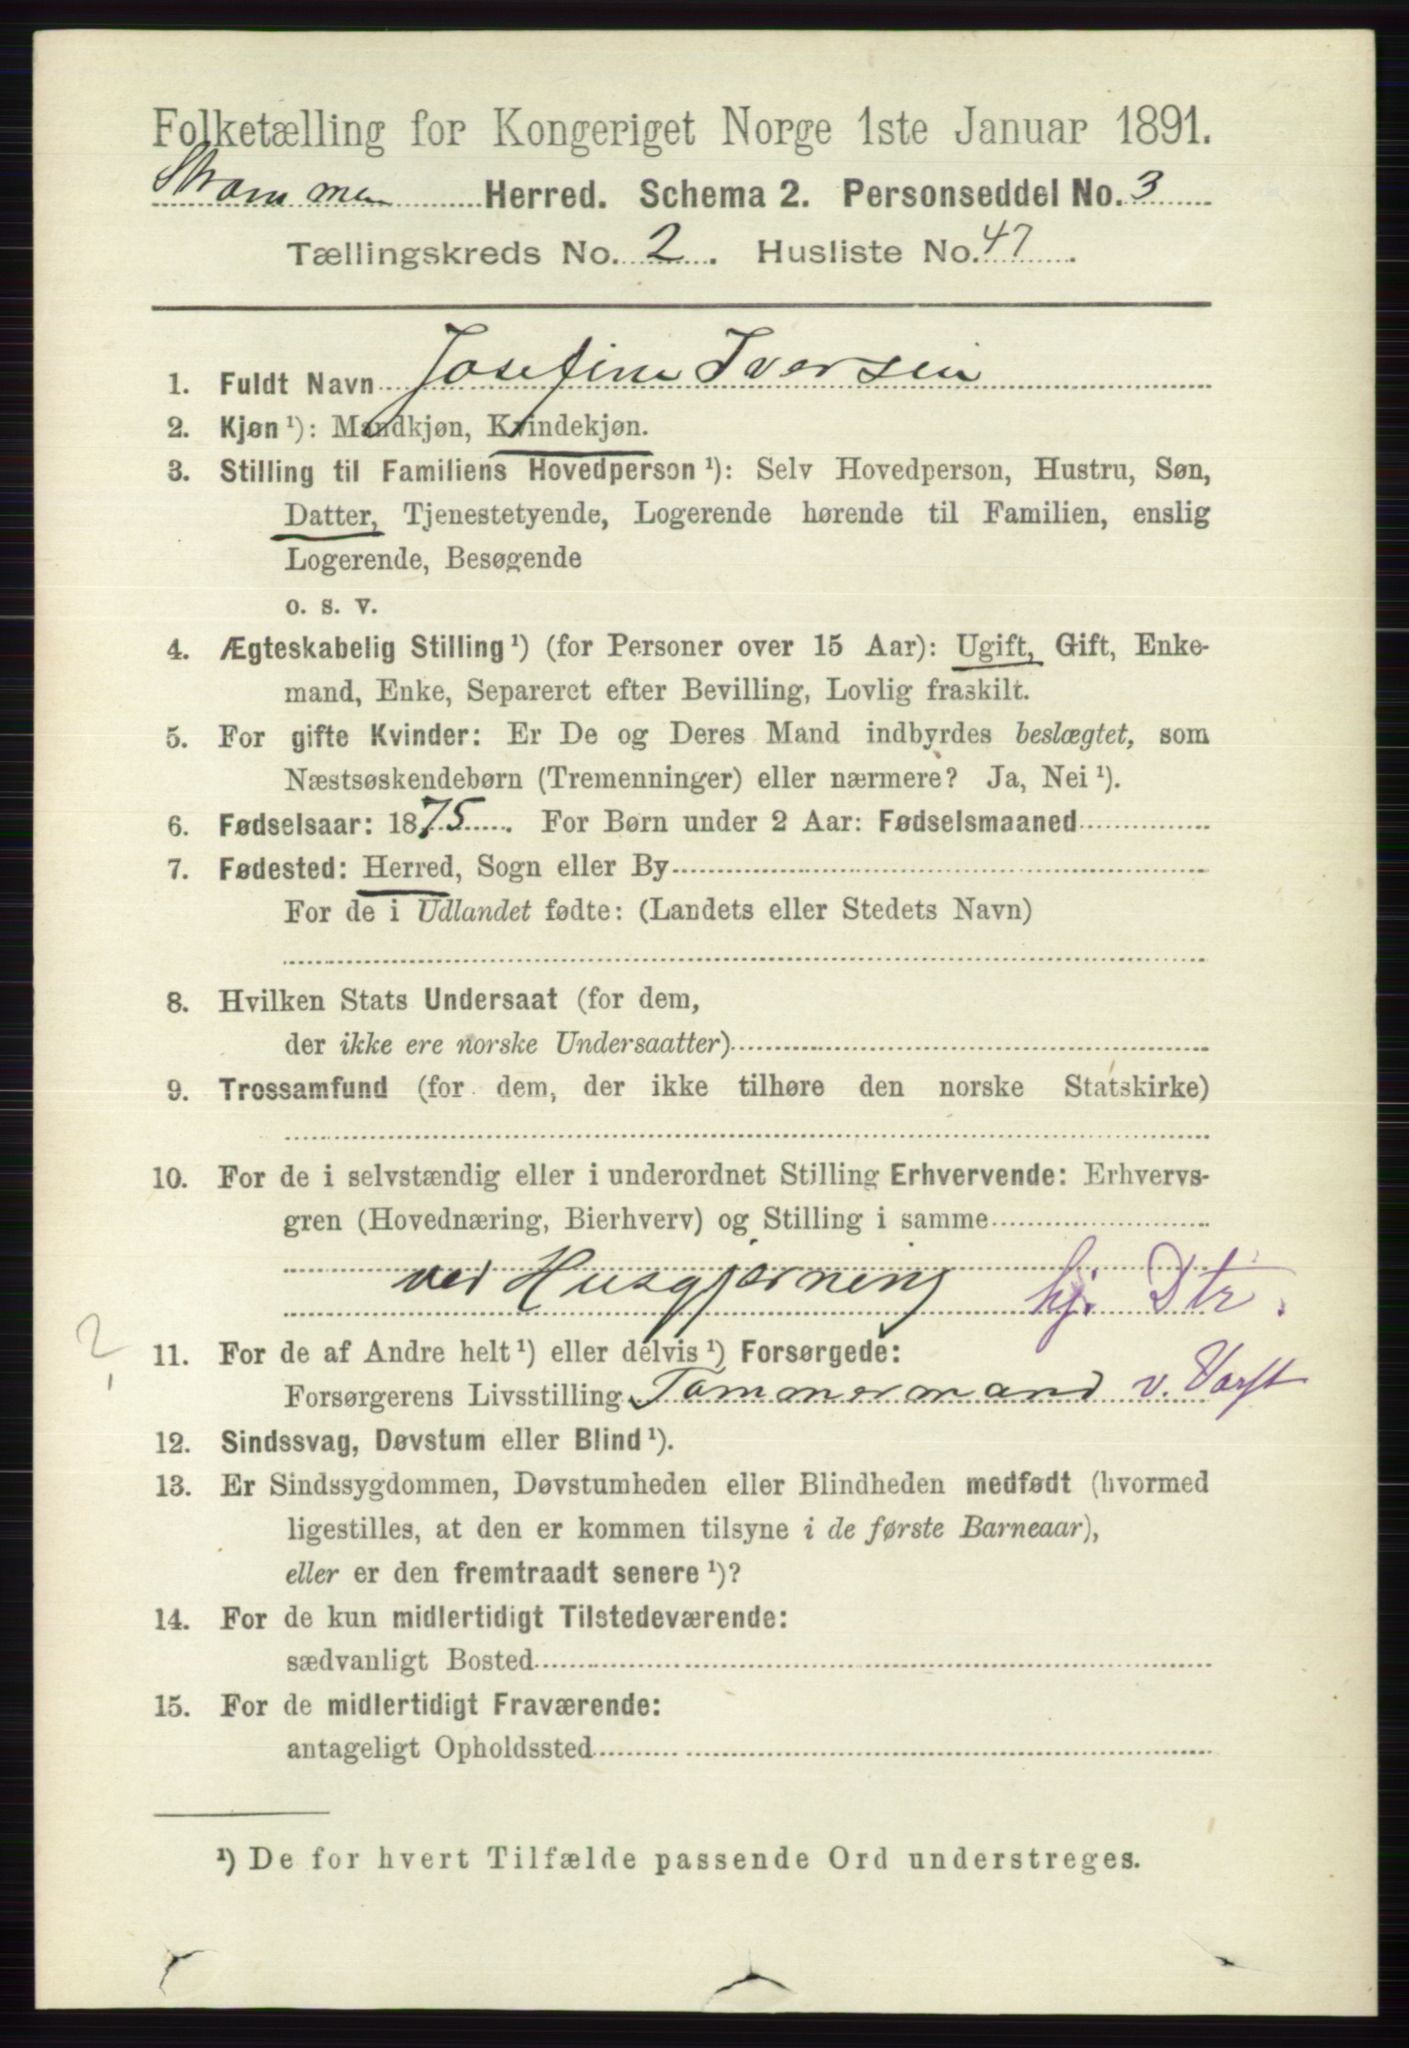 Folketælling for Kongeriget Norge 1ste Januar 1891.
Strømmen Herred. Schema 2. Personseddel No. 3
Tællingskreds No. 2. Husliste No. 47.
1. Fuldt Navn Josefine Iversen
2. Kjøn ¹): Mandkjøn, Kvindekjøn.
3. Stilling til Familiens Hovedperson ¹): Selv Hovedperson, Hustru, Søn,
Datter, Tjenestetyende, Logerende hørende til Familien, enslig
Logerende, Besøgende
o. s. v.
4. Ægteskabelig Stilling ¹) (for Personer over 15 Aar): Ugift, Gift, Enke-
mand, Enke, Separeret efter Bevilling, Lovlig fraskilt.
5. For gifte Kvinder: Er De og Deres Mand indbyrdes beslægtet, som
Næstsøskendebørn (Tremenninger) eller nærmere? Ja, Nei ¹).
6. Fødselsaar: 1875. For Børn under 2 Aar: Fødselsmaaned
7. Fødested: Herred, Sogn eller By
For de i Udlandet fødte: (Landets eller Stedets Navn)
8. Hvilken Stats Undersaat (for dem,
der ikke ere norske Undersaatter)
9. Trossamfund (for dem, der ikke tilhøre den norske Statskirke)
10. For de i selvstændig eller i underordnet Stilling Erhvervende: Erhvervs-
gren (Hovednæring, Bierhverv) og Stilling i samme
ved Husgjerning hj. Dtr.
?
11. For de af Andre helt ¹) eller delvis ¹) Forsørgede:
Forsørgerens Livsstilling Tømmermand v.
12. Sindssvag, Døvstum eller Blind ¹).
13. Er Sindssygdommen, Døvstumheden eller Blindheden medfødt (hvormed
ligestilles, at den er kommen tilsyne i de første Barneaar),
eller er den fremtraadt senere ¹)?
14. For de kun midlertidigt Tilstedeværende:
sædvanligt Bosted
15. For de midlertidigt Fraværende:
antageligt Opholdssted
¹) De for hvert Tilfælde passende Ord understreges.